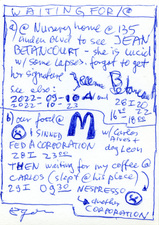 WAITING FOR/@
a) @ Nursery home @ 135
linden Blvd to see JEAN
BETANCOURT - she is lucid
w/ some lapses. forgot to get
her signature Jeanne
see also: Betancourt
2022-09-10 and
2022-10-23
28 I 20
16:22
18:22
b) our food @ M
I SINKED w/ Carlos
FED A CORPORATION Alvarez +
28 I 23:00 dog Leon
THEN waiting for my coffee @
CARLOS (slept @ his place)
29 I 09:30 NESPRESSO
another
CORPORATION!